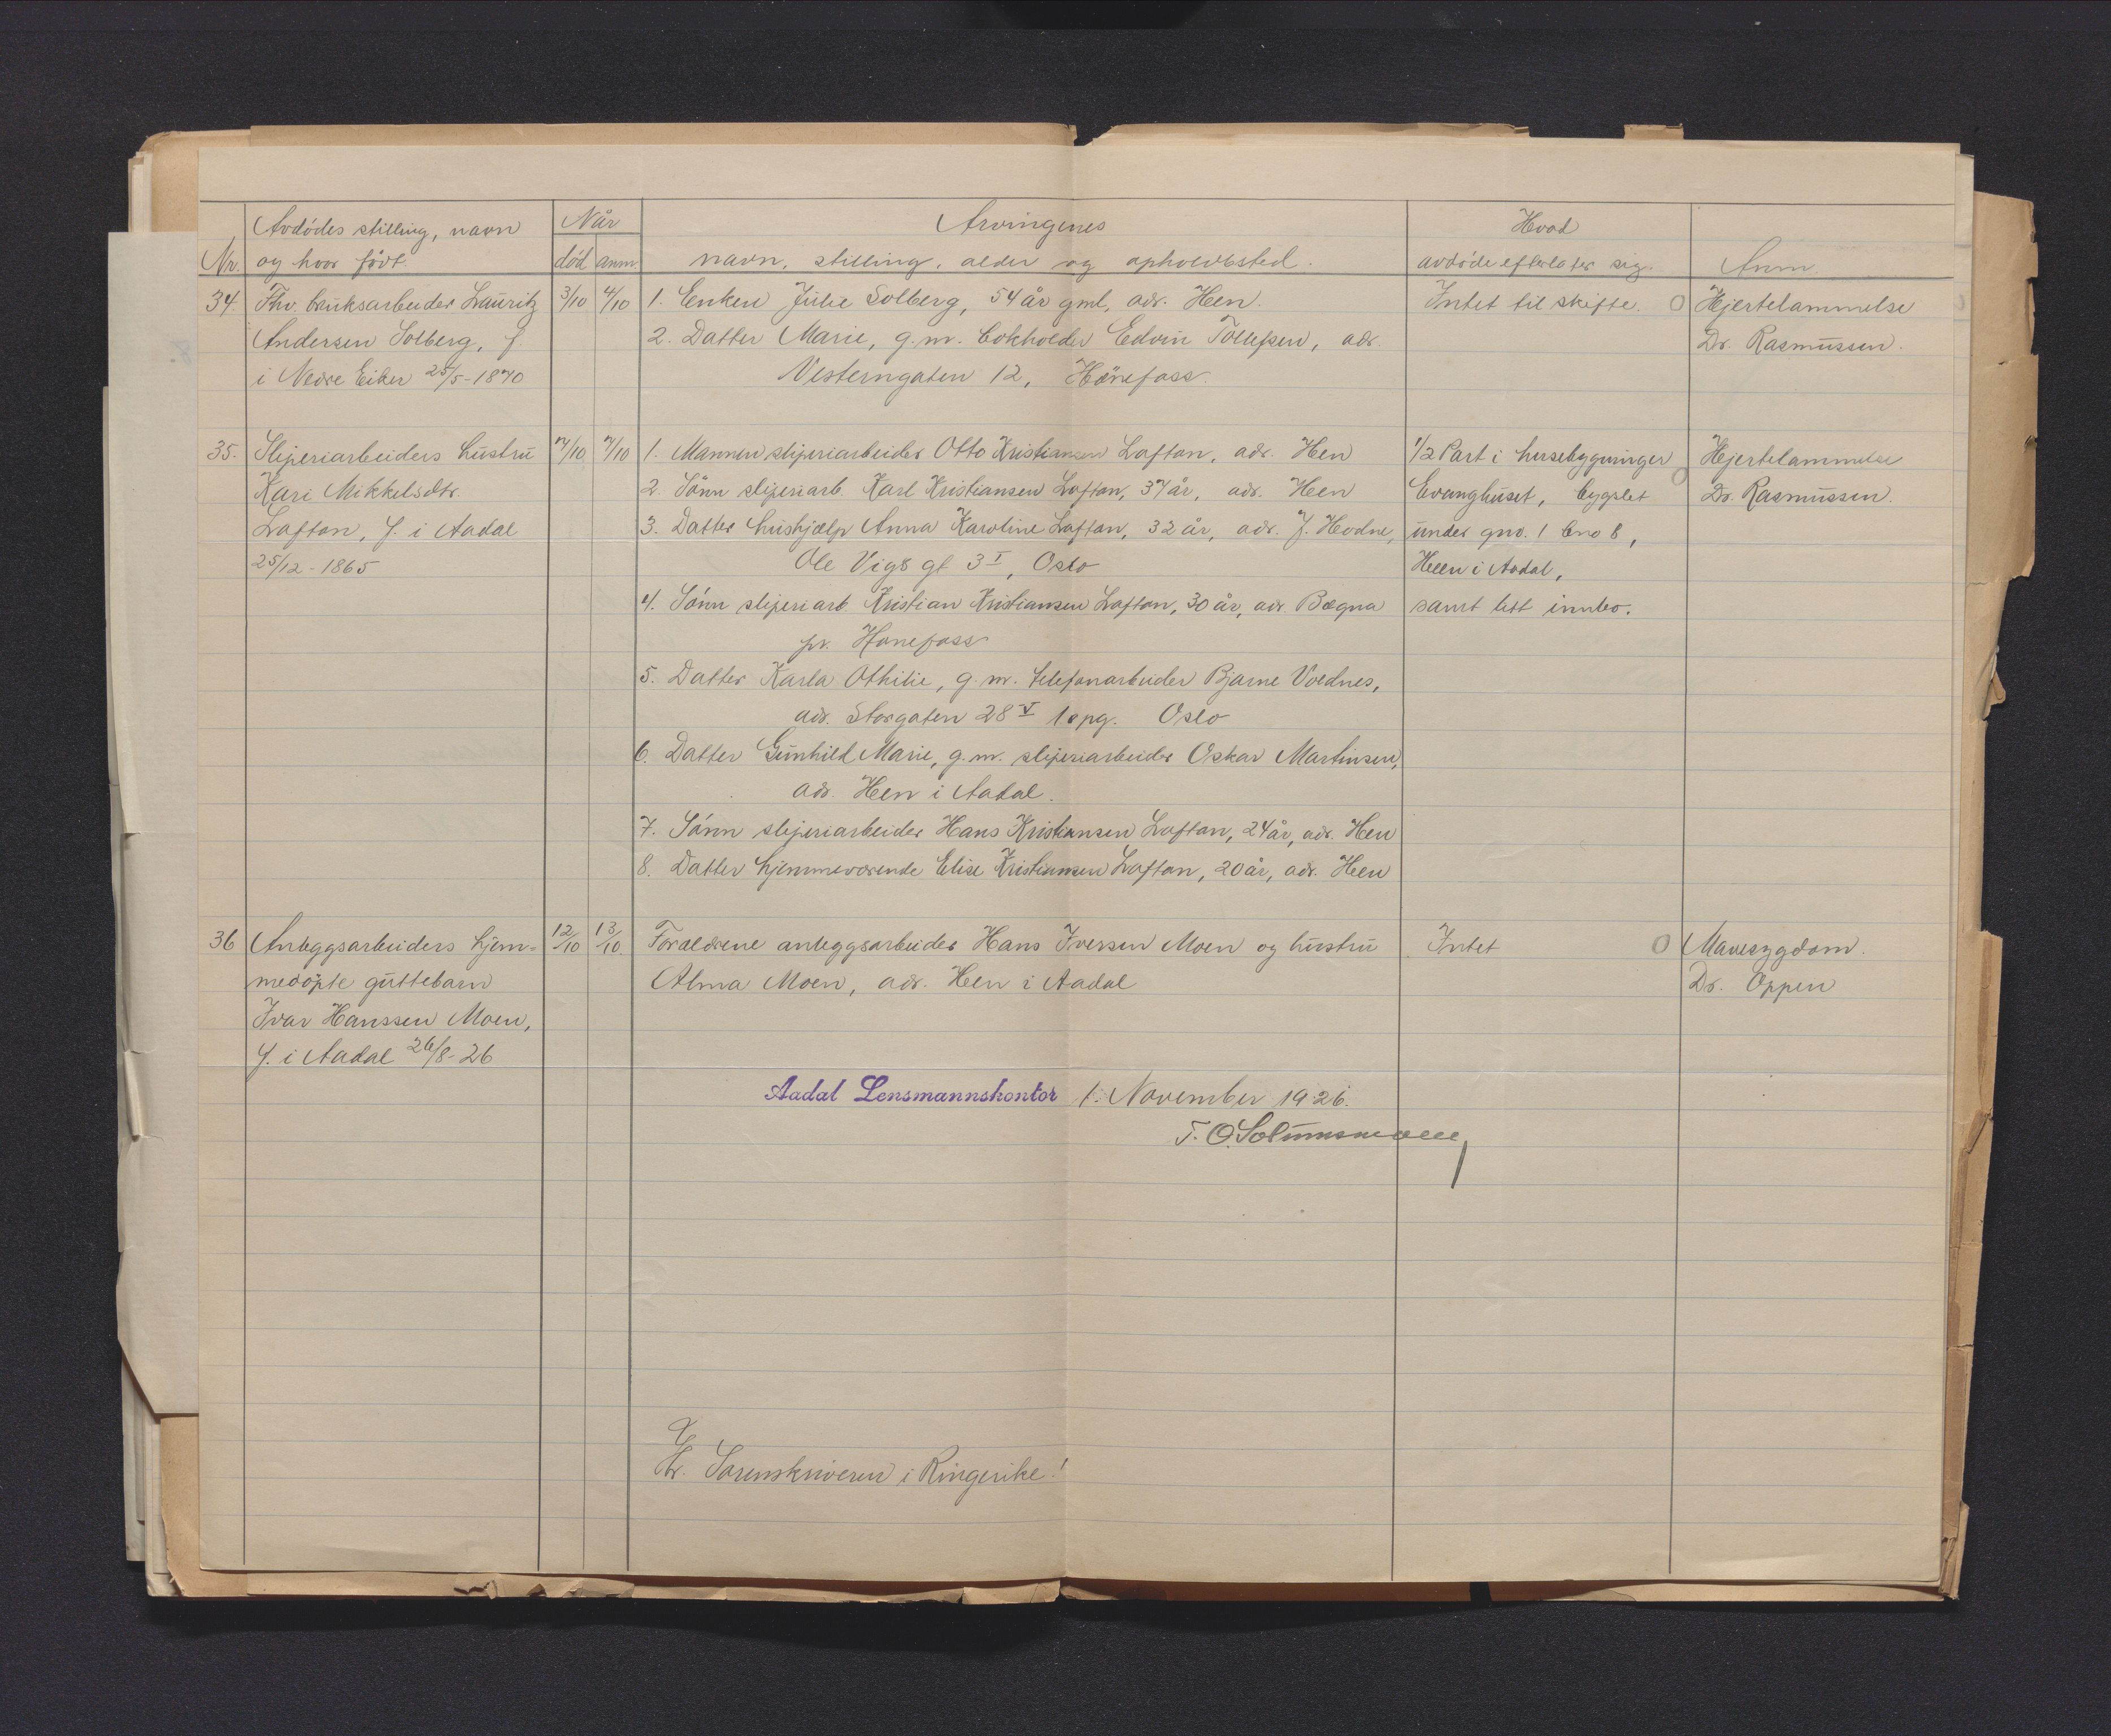 Avdödes stilling, navn
og hvor født.
Nr.
Når
död anm.
Arvingenes
navn, stilling, alder og opholdssted.
Hvad
avdöde efterlater sig.
Anm.
34. Fhv. bruksarbeider Lauritz 3/10 4/10 1. Enken Julie Solberg, 54 år gml, adr. Hen. Intet til skifte. Hjertelammelse
Andersen Solberg, f. 2. Datter Marie, g.m. bokholder Edvin Tollefsen, adr. Dr. Rasmussen.
i Nedre Eiker 25/5-1870 Vesterngaten 12, Hönefoss.
35. Sliperiarbeiders hustru 7/10 7/10 1. Mannen sliperiarbeider Otto Kristiansen Laftan, adr. Hen 1/2 Part i husebygninger Hjertelammelse
Kari Mikkelsdtr. 2. Sönn sliperiarb. Karl Kristiansen Laftan, 37 år, adr. Hen Evanghuset, bygslet Dr. Rasmussen.
Laftan, f. i Aadal 3. Datter hushjælp Anna Karoline Laftan, 32 år, adr. J. Hodne, under gno. 1 bno 8,
25/12-1865 Ole Vigs gt 3 I, Oslo Heen i Aadal,
4. Sönn sliperiarb Kristian Kristiansen Laftan, 30 år, adr. Bægna samt litt innbo.
pr. Hönefoss
5. Datter Karla Othilie, g.m. telefonarbeider Bjarne Voldnes,
adr. Storgaten 28 V 1 opg. Oslo
6. Datter Gunhild Marie, g.m. sliperiarbeider Oskar Martinsen,
adr. Hen i Aadal.
7. Sönn sliperiarbeider Hans Kristiansen Laftan, 24 år, adr. Hen
8. Datter hjemmeværende Elise Kristiansen Laftan, 20 år, adr. Heen
36 Anleggsarbeiders hjem- 12/10 13/10. Forældrene anleggsarbeider Hans Iversen Moen og hustru Intet Mavesygdom.
medöpte guttebarn Alma Moen, adr. Hen i Aadal Dr. Oppen
Ivar Hanssen Moen,
f. i Aadal 26/8-26
Aadal Lensmannskontor 1. November 1926.
T. O. Solumsmoen
Hr. Sorenskriveren i Ringerike!